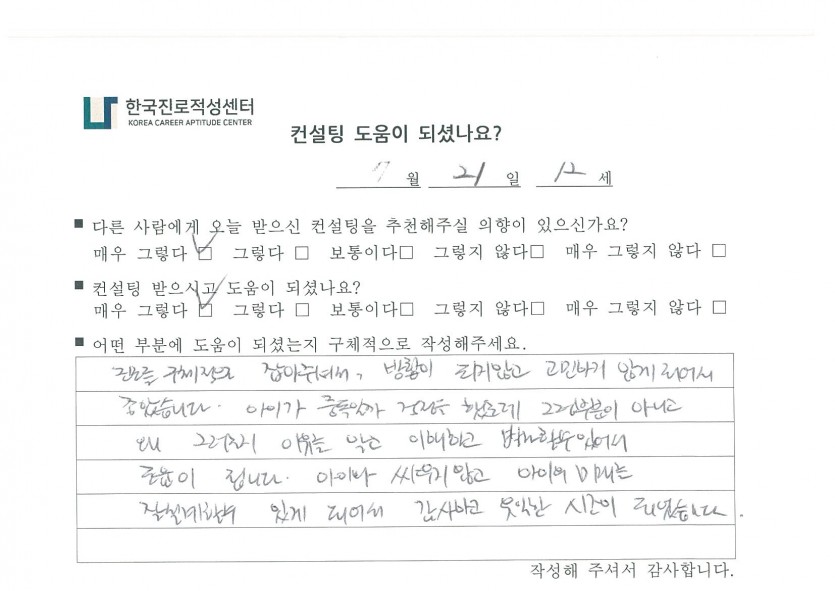 한국진로적성센터
KOREA CAREER APTITUDE CENTER
컨설팅 도움이 되셨나요?
7 월 21 일 12 세
■ 다른 사람에게 오늘 받으신 컨설팅을 추천해주실 의향이 있으신가요?
매우 그렇다 □ 그렇다 □ 보통이다□ 그렇지 않다□ 매우 그렇지 않다 □
■ 컨설팅 받으시고 도움이 되셨나요?
매우 그렇다 □ 그렇다 □ 보통이다□ 그렇지 않다□ 매우 그렇지 않다 □
■ 어떤 부분에 도움이 되셨는지 구체적으로 작성해주세요.
진로를 구체적으로 잡아주셔서, 방황이 되지않고 고민하지 않게 되어서
좋았습니다. 아이가 중독일까 걱정도 했는데 그런부분이 아니고
왜 그러는지 이유를 알고 이해하고 변화할수있어서
도움이 됩니다. 아이와 싸우지않고 아이의
잘 있게 되어서 감사하고 유익한 시간이 되었습니다.
작성해 주셔서 감사합니다.